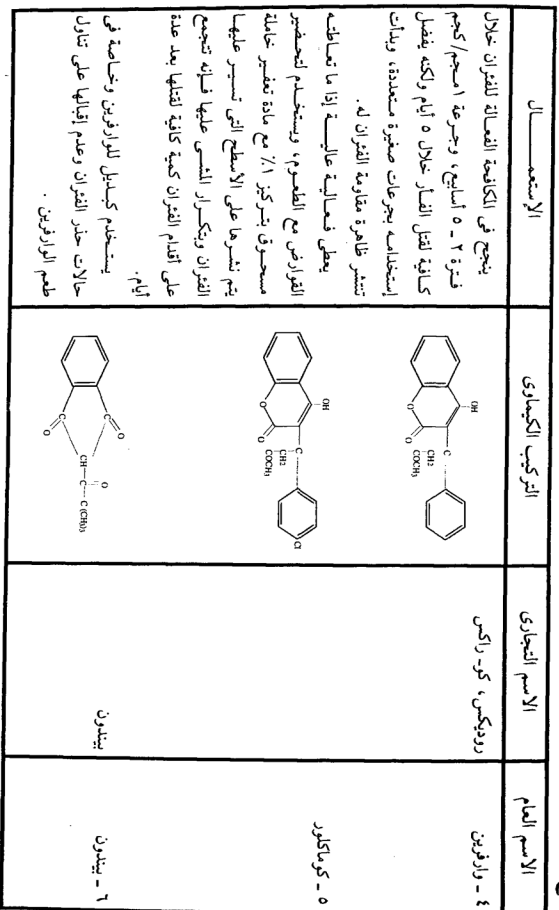 الاسم العام
الاسم التجارى
التركيب الكيماوى
الاستعمـــــــال
٤ ـ وارفرين
روديكس، كو ـ راكس
OH
O
O
C
CH2
COCH3
ينجح فى الكافحة الفعالة للفئران خلال
فترة ٢ ـ ٥ أسابيع، وجرعة ١مجم/ كجم
كافية لقتل الفأر خلال ٥ أيام ولكنه يفضل
إستخدامه بجرعات صغيرة متعددة، وبدأت
تنتشر ظاهرة مقاومة الفئران له.
٥ ـ كوماكلور
OH
O
O
C
CH2
COCH3
Cl
يعطى فعالية عالية إذا ما تعاطته
القوارض مع الطعوم، ويستخدم لتحضير
مسحوق بتركيز ١٪ مع مادة تعفير خاملة
يتم نشرها على الأسطح التى تسير عليها
الفئران وبتكرار المشى عليها فإنه تتجمع
على أقدام الفئران كمية كافية لقتلها بعد عدة
أيام.
٦ ـ بيندون
بيندون
C
O
C
O
CH
C
O
C (CH)3
يستخدم كبديل للوارفرين وخاصة فى
حالات حذر الفئران وعدم إقبالها على تناول
طعم الوارفرين .